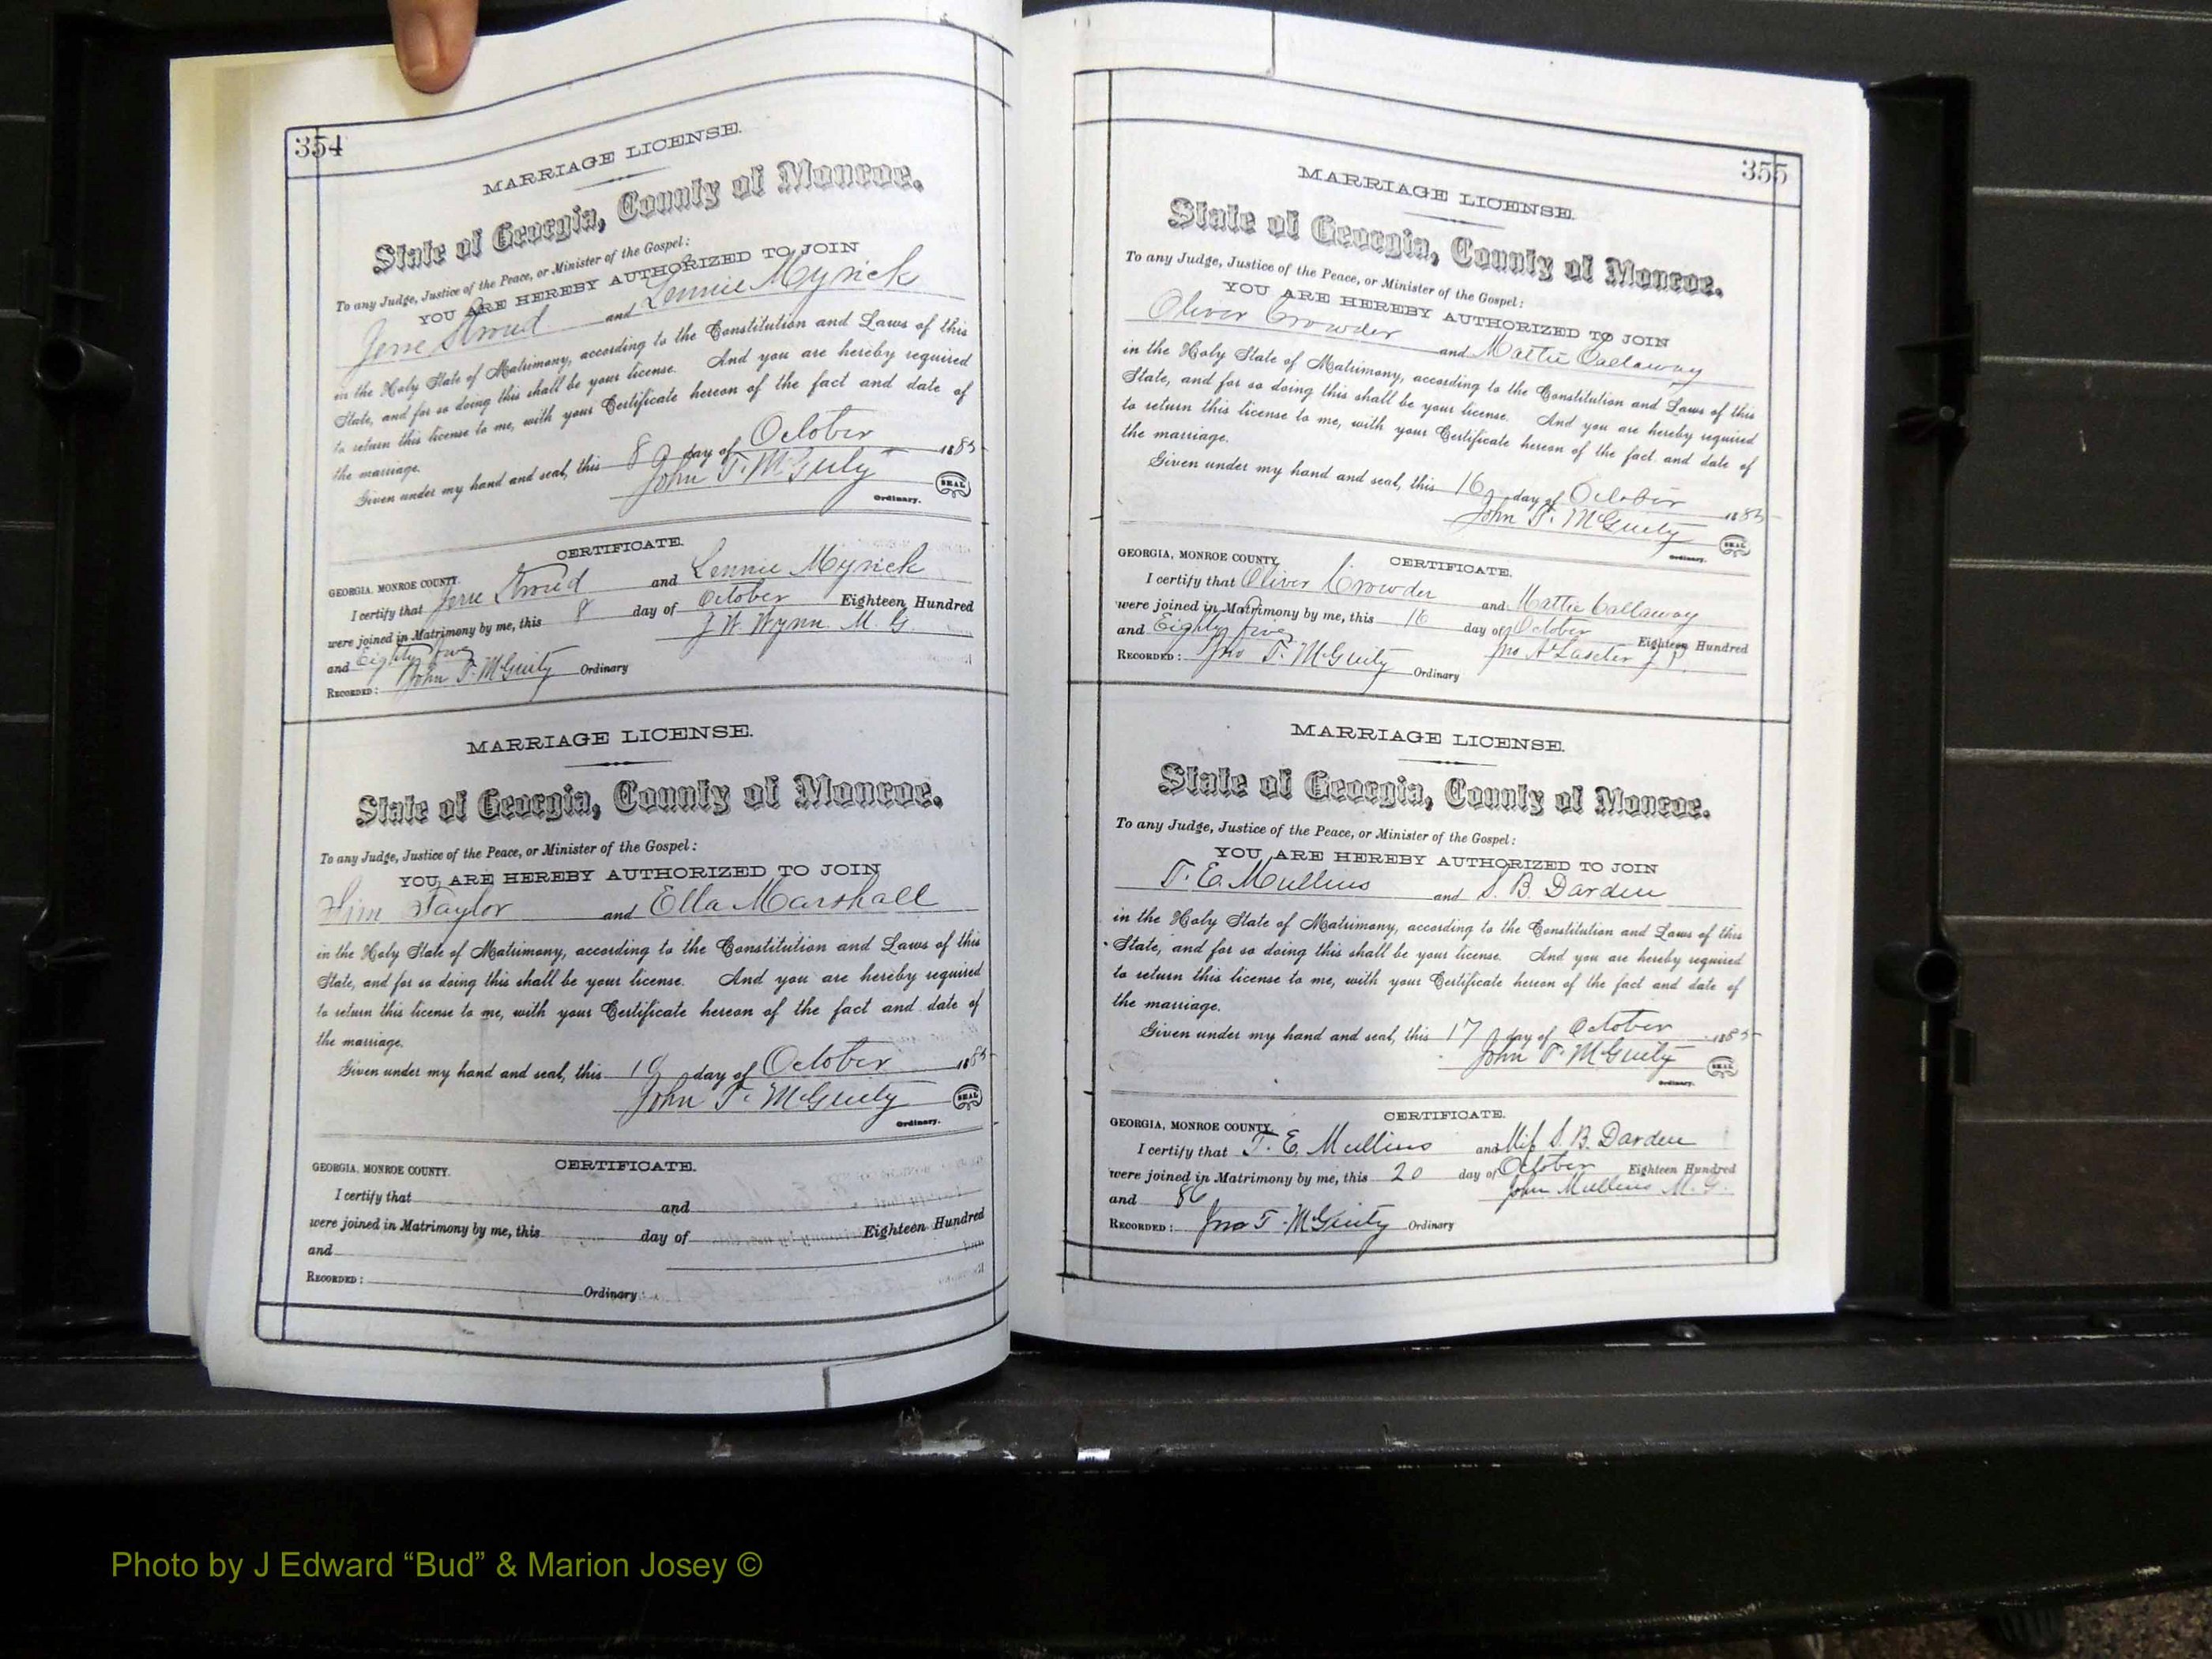 354
MARRIAGE LICENSE.
State of Georgia, County of Monroe.
To any Judge, Justice of the Peace, or Minister of the Gospel:
YOU ARE HEREBY AUTHORIZED TO JOIN
Jerre Stroud and Lennie Myrick
in the Holy State of Matrimony, according to the Constitution and Laws of this
State, and for so doing this shall be your license. And you are hereby required
to return this license to me, with your Certificate hereon of the fact and date of
the marriage.
Given under my hand and seal, this 8 day of October 1885
John T. McGinty SEAL
Ordinary.
CERTIFICATE.
GEORGIA, MONROE COUNTY.
I certify that Jerre Stroud and Lennie Myrick
were joined in Matrimony by me, this 8 day of October Eighteen Hundred
and Eighty five J. W. Wynn M. G.
RECORDED: John T. McGinty Ordinary
MARRIAGE LICENSE.
State of Georgia, County of Monroe.
To any Judge, Justice of the Peace, or Minister of the Gospel:
YOU ARE HEREBY AUTHORIZED TO JOIN
Taylor and Ella Marshall
in the Holy State of Matrimony, according to the Constitution and Laws of this
State, and for so doing this shall be your license. And you are hereby required
to return this license to me, with your Certificate hereon of the fact and date of
the marriage.
Given under my hand and seal, this day of October 1885
John T. McGinty SEAL
Ordinary.
CERTIFICATE.
GEORGIA, MONROE COUNTY.
I certify that and
were joined in Matrimony by me, this day of Eighteen Hundred
and
RECORDED: Ordinary
355
MARRIAGE LICENSE.
State of Georgia, County of Monroe.
To any Judge, Justice of the Peace, or Minister of the Gospel:
YOU ARE HEREBY AUTHORIZED TO JOIN
Oliver Crowder and Mattie Callaway
in the Holy State of Matrimony, according to the Constitution and Laws of this
State, and for so doing this shall be your license. And you are hereby required
to return this license to me, with your Certificate hereon of the fact and date of
the marriage.
Given under my hand and seal, this 16 day of October 1885
John T. McGinty SEAL
Ordinary.
CERTIFICATE.
GEORGIA, MONROE COUNTY.
I certify that Oliver Crowder and Mattie Callaway
were joined in Matrimony by me, this 16 day of October Eighteen Hundred
and Eighty five Jno A Lasseter J P
RECORDED: Jno T. McGinty Ordinary
MARRIAGE LICENSE.
State of Georgia, County of Monroe.
To any Judge, Justice of the Peace, or Minister of the Gospel:
YOU ARE HEREBY AUTHORIZED TO JOIN
T. E. Mullins and S. B. Darden
in the Holy State of Matrimony, according to the Constitution and Laws of this
State, and for so doing this shall be your license. And you are hereby required
to return this license to me, with your Certificate hereon of the fact and date of
the marriage.
Given under my hand and seal, this 17 day of October 1885
John T. McGinty SEAL
Ordinary.
CERTIFICATE.
GEORGIA, MONROE COUNTY.
I certify that T. E. Mullins and Miss S. B. Darden
were joined in Matrimony by me, this 20 day of October Eighteen Hundred
and 86 John Mullins M. G.
RECORDED: Jno T. McGinty Ordinary
Photo by J Edward “Bud” & Marion Josey ©